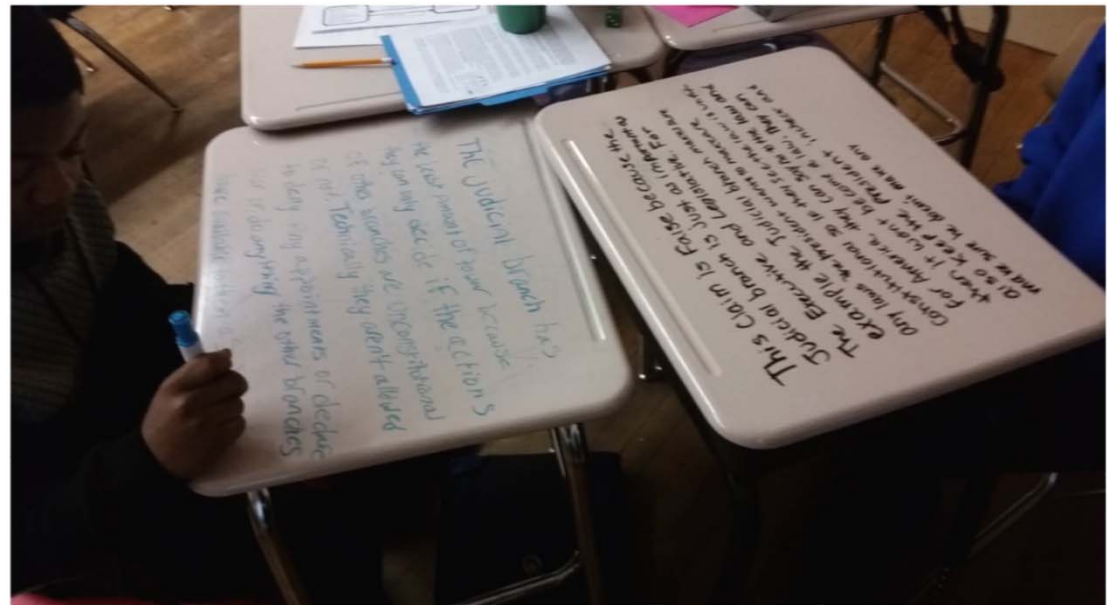 The judicial branch has
the least amount of power because
they can only decide if the actions
of other branches are unconstitutional
or not. Technically they aren't allowed
to deny any appointments or declare
war or do anything the other branches
have
This Claim is False because the
Judicial branch is Just as important as
The Executive and Legislative. For
example the Judicial branch makes sure
any laws the president wants to
Constitutional so they see the law is
for America, they can say for the law and
then it won't become a law. They can
also keep the president in check and
make sure he doesn't make any